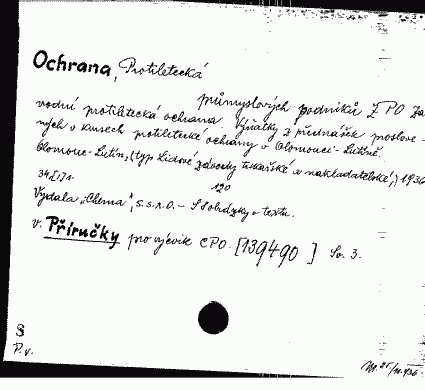 Ochrana, Protiletecká
průmyslových podniků Z PO Zá
vodní protiletecká ochrana. Výňatky z přednášek proslove-
ných v kursech protiletecké ochrany v Olomouci-Lutíně.
Olomouc-Lutín, (typ Lidové závody tiskařské a nakladatelské,) 1936
120
Vydala „Chema", s.s.r.o. - S obrázky v textu.
v. Příručky pro výcvik CPO. [139490 ] Sv. 3.
8
P. v.